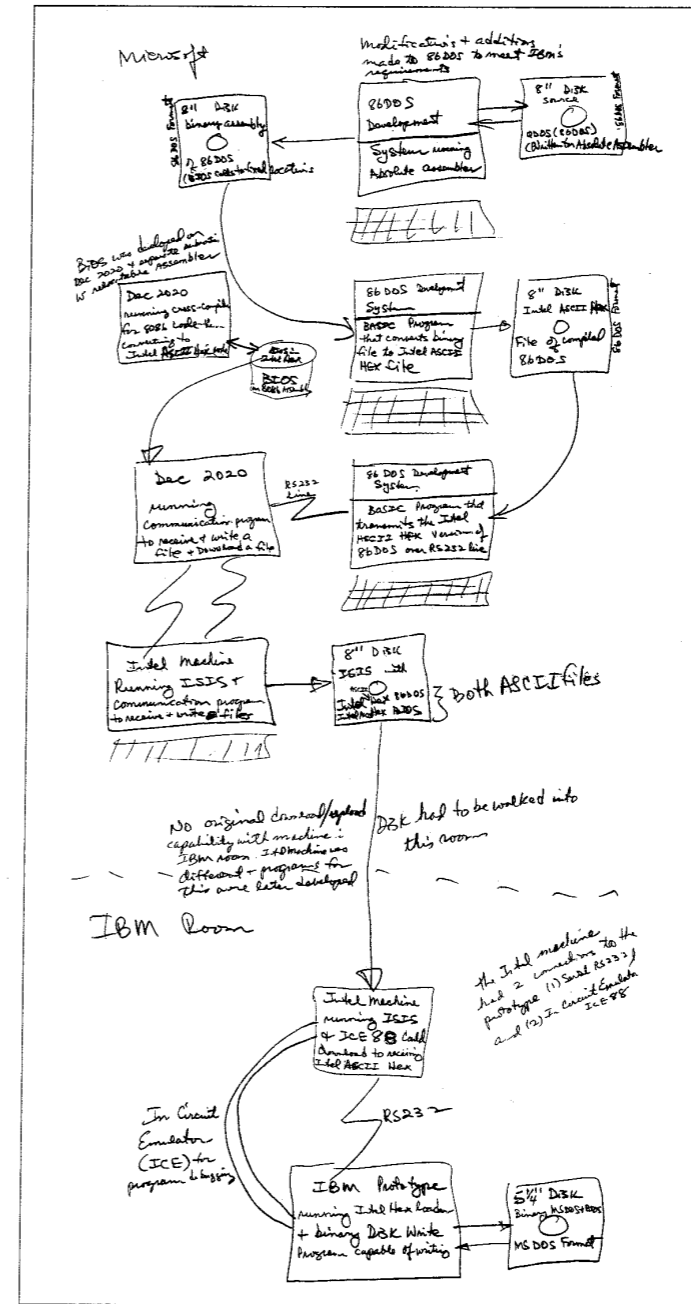 Microsoft
Modifications + additions
made to 86DOS to meet IBM's
requirements
8" Disk
binary assembly
of 86DOS
(BIOS calls to fixed locations
86DOS Format
86DOS
Development
System running
Absolute assembler
8" Disk
source
QDOS (86DOS)
(Written for Absolute Assembler
86DOS Format
BIOS was developed on
Dec 2020 +
w relocatable Assembler
Dec 2020
running cross-compiler
for 8086 code
converting to
Intel ASCII Hex code
BIOS in
Intel Hex
BIOS
86DOS Development
System
BASIC Program
that converts binary
file to Intel ASCII
HEX file
8" Disk
Intel ASCII Hex
File of compiled
86DOS
86DOS Format
Dec 2020
running
Communication program
to receive + write a
file + Download a file
RS232
Line
86 DOS Development
System
BASIC Program that
transmits the Intel
ASCII HEX version of
86DOS over RS232 line
Intel Machine
Running ISIS +
Communication program
to receive + write files
8" Disk
ISIS with
ASCII
Intel Hex 86DOS
Intel Hex BIOS
Both ASCII files
No original download/upload
capability with machine in
IBM room. Intel Machine was
different + programs for
this were later developed
Disk had to be walked into
this room
IBM Room
the Intel machine
had 2 connections to the
prototype (1) Serial RS232
and (2) In Circuit Emulator
ICE 88
Intel Machine
running ISIS
& ICE 88 Could
download to receiving
Intel ASCII Hex
In Circuit
Emulator
(ICE) for
program debugging
RS232
IBM Prototype
running Intel Hex loader
+ binary Disk Write
Program capable of writing
5¼" Disk
Binary MSDOS+BIOS
MS DOS Format